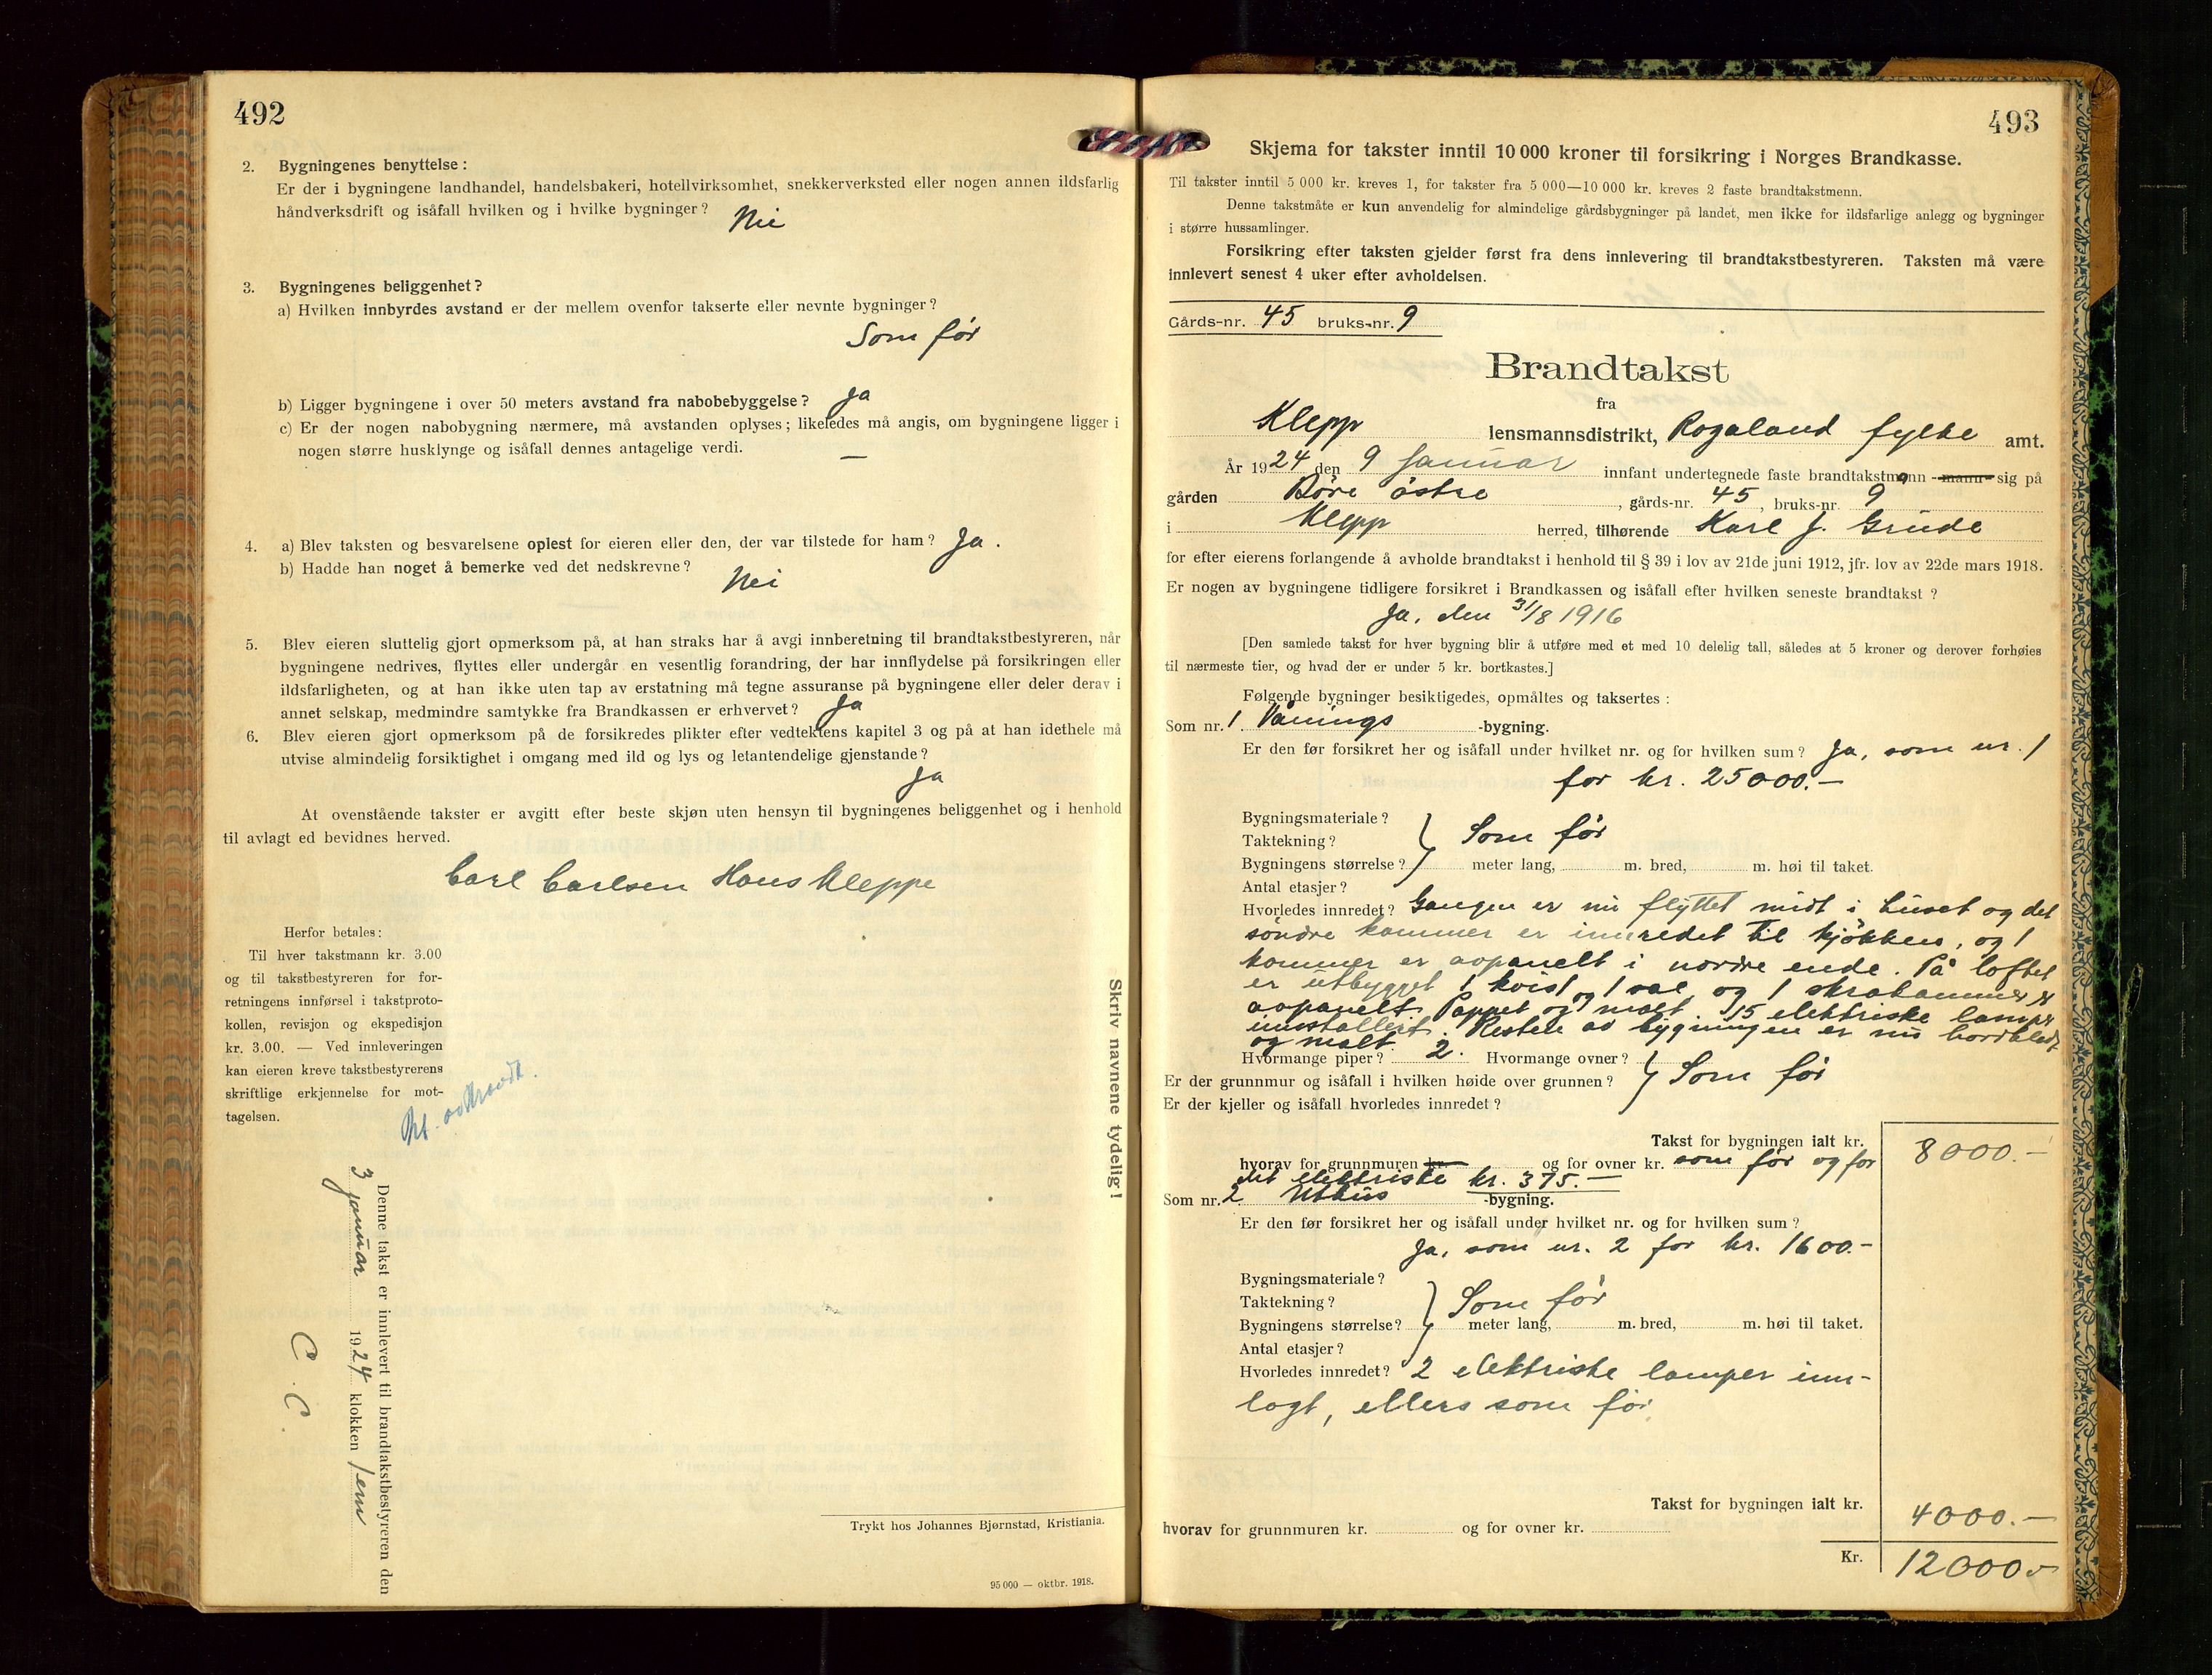 492
2. Bygningenes benyttelse:
Er der i bygningene landhandel, handelsbakeri, hotellvirksomhet, snekkerverksted eller nogen annen ildsfarlig
håndverksdrift og isåfall hvilken og i hvilke bygninger? Nei
3. Bygningenes beliggenhet?
a) Hvilken innbyrdes avstand er der mellem ovenfor takserte eller nevnte bygninger?
Som før
b) Ligger bygningene i over 50 meters avstand fra nabobebyggelse? Ja
c) Er der nogen nabobygning nærmere, må avstanden oplyses; likeledes må angis, om bygningene ligger i
nogen større husklynge og isåfall dennes antagelige verdi. —
4. a) Blev taksten og besvarelsene oplest for eieren eller den, der var tilstede for ham? Ja.
b) Hadde han noget å bemerke ved det nedskrevne? Nei
5. Blev eieren sluttelig gjort opmerksom på, at han straks har å avgi innberetning til brandtakstbestyreren, når
bygningene nedrives, flyttes eller undergår en vesentlig forandring, der har innflydelse på forsikringen eller
ildsfarligheten, og at han ikke uten tap av erstatning må tegne assuranse på bygningene eller deler derav i
annet selskap, medmindre samtykke fra Brandkassen er erhvervet? Ja
6. Blev eieren gjort opmerksom på de forsikredes plikter efter vedtektens kapitel 3 og på at han idethele må
utvise almindelig forsiktighet i omgang med ild og lys og letantendelige gjenstande?
Ja
At ovenstående takster er avgitt efter beste skjøn uten hensyn til bygningenes beliggenhet og i henhold
til avlagt ed bevidnes herved.
Carl Carlsen Hans Kleppe
Herfor betales:
Til hver takstmann kr. 3.00
og til takstbestyreren for for-
retningens innførsel i takstproto-
kollen, revisjon og ekspedisjon
kr. 3.00. — Ved innleveringen
kan eieren kreve takstbestyrerens
skriftlige erkjennelse for mot-
tagelsen.
Denne takst er innlevert til brandtakstbestyreren den
3 januar 1924 klokken 1 em
C. C
Skriv navnene tydelig!
Trykt hos Johannes Bjørnstad, Kristiania.
95 000 — oktbr. 1918.
493
Skjema for takster inntil 10 000 kroner til forsikring i Norges Brandkasse.
Til takster inntil 5 000 kr. kreves 1, for takster fra 5 000—10 000 kr. kreves 2 faste brandtakstmenn.
Denne takstmåte er kun anvendelig for almindelige gårdsbygninger på landet, men ikke for ildsfarlige anlegg og bygninger
i større hussamlinger.
Forsikring efter taksten gjelder først fra dens innlevering til brandtakstbestyreren. Taksten må være
innlevert senest 4 uker efter avholdelsen.
Gårds-nr. 45 bruks-nr. 9
Brandtakst
fra
Klepp lensmannsdistrikt, Rogaland fylke amt.
År 1924 den 9 Januar innfant undertegnede faste brandtakstmenn - mann - sig på
gården Børe østre, gårds-nr. 45, bruks-nr. 9
i Klepp herred, tilhørende Karl J. Grude
for efter eierens forlangende å avholde brandtakst i henhold til § 39 i lov av 21de juni 1912, jfr. lov av 22de mars 1918.
Er nogen av bygningene tidligere forsikret i Brandkassen og isåfall efter hvilken seneste brandtakst?
Ja, den 31/8 1916
[Den samlede takst for hver bygning blir å utføre med et med 10 delelig tall, således at 5 kroner og derover forhøies
til nærmeste tier, og hvad der er under 5 kr. bortkastes.]
Følgende bygninger besiktigedes, opmåltes og taksertes:
Som nr. 1 Vånings -bygning.
Er den før forsikret her og isåfall under hvilket nr. og for hvilken sum? Ja, som nr. 1
for kr. 25000.—
Bygningsmateriale?
Taktekning? Som før
Bygningens størrelse? meter lang, m. bred, m. høi til taket.
Antal etasjer?
Hvorledes innredet? Gangen er nu flyttet midt i huset og det
søndre kammer er innredet til kjøkken, og 1
kammer er avpanelt i nordre ende. På loftet
er utbygget 1 kvist og 1 sal og 1 skråkammer er
avpanelt. Pappet og malt. 15 elektriske lamper
innstallert. Resten av bygningen er nu bordkledt
og malt.
Hvormange piper? 2. Hvormange ovner?
Er der grunnmur og isåfall i hvilken høide over grunnen? Som før
Er der kjeller og isåfall hvorledes innredet?
Takst for bygningen ialt kr. 8000.—
hvorav for grunnmuren kr. og for ovner kr. som før og for
det elektriske kr. 375.—
Som nr. 2 Uthus -bygning.
Er den før forsikret her og isåfall under hvilket nr. og for hvilken sum?
Ja, som nr. 2 for kr. 1600.—
Bygningsmateriale?
Taktekning? Som før
Bygningens størrelse? meter lang, m. bred, m. høi til taket.
Antal etasjer?
Hvorledes innredet? 2 elektriske lamper inn-
lagt, ellers som før
Takst for bygningen ialt kr. 4000.—
hvorav for grunnmuren kr. og for ovner kr.
Kr. 12000.—